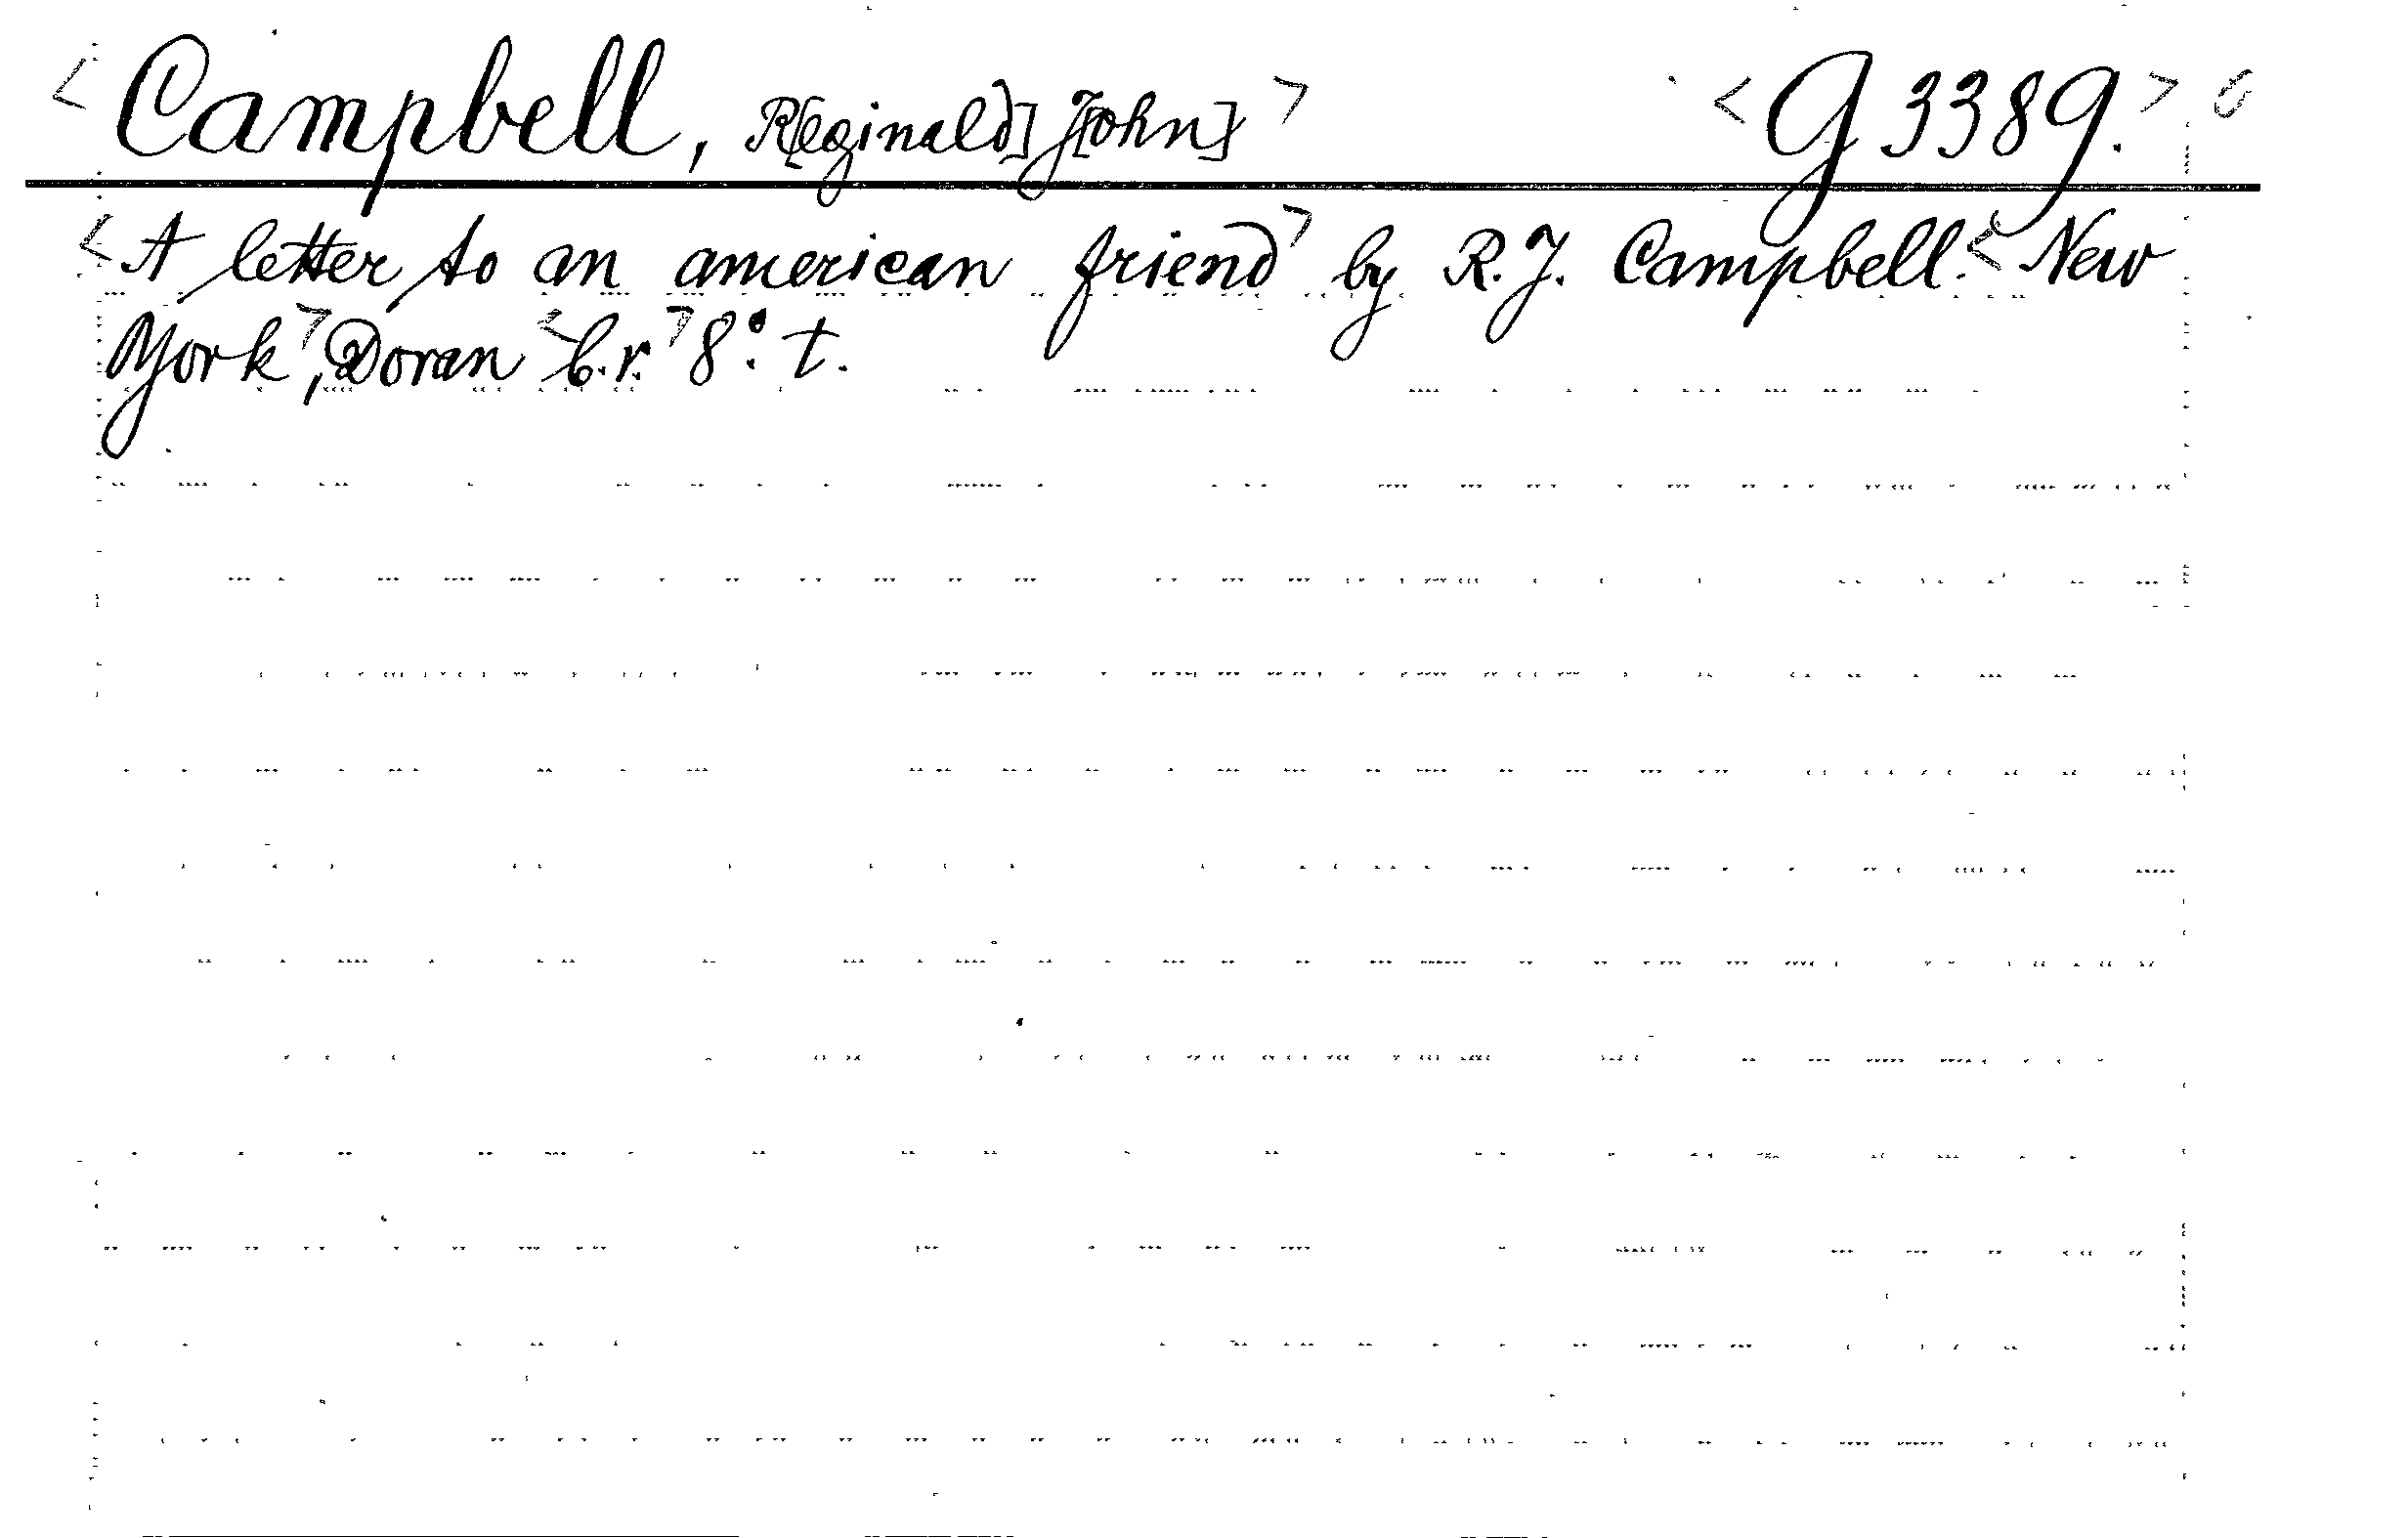 <Campbell, R[eginald] J[ohn]> <G 3389.>
<A letter to an american friend> by R. J. Campbell. <New
York>, Doran <b.r.> 8°. t.